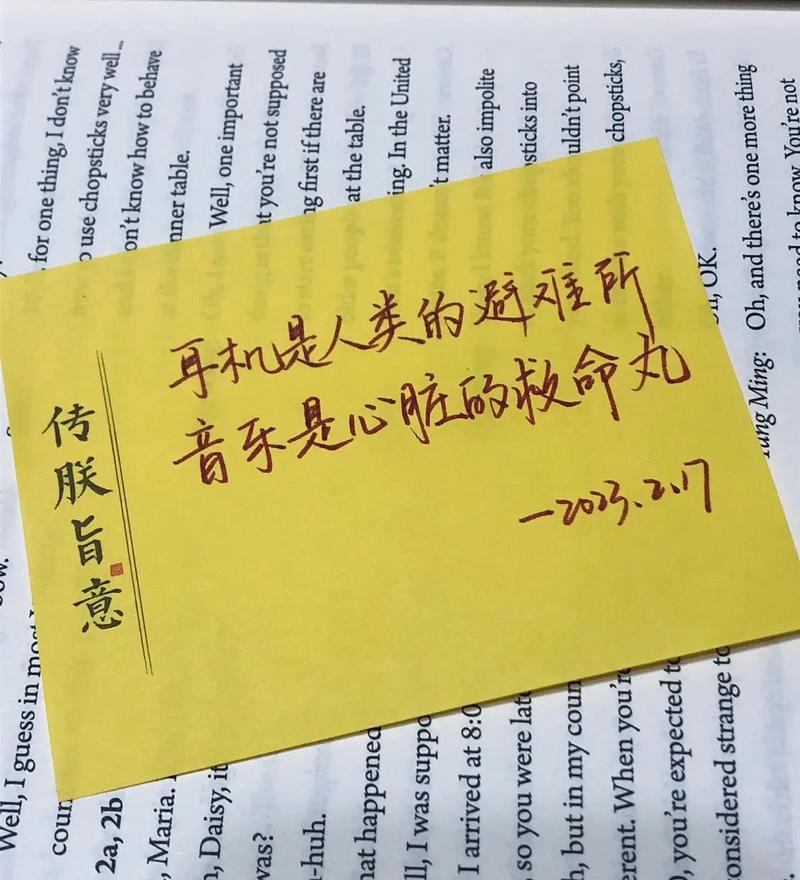 耳机是人类的避难所
音乐是心脏的救命丸
—2023.2.17
传朕旨意
for one thing, I don't know
use chopsticks very well...
don't know how to behave
table.
Well, one important
you're not supposed
first if there are
at the table.
In the United
matter.
also impolite
into
point
chopsticks,
OK.
Ming: Oh, and there's one more thing
need to know. You're not
Well, I guess in most
2a, 2b
Maria.
Daisy,
was?
-huh.
happened
I was
I arrived at 8:0
so you were
but in my
When you're
you're expected
considered strange